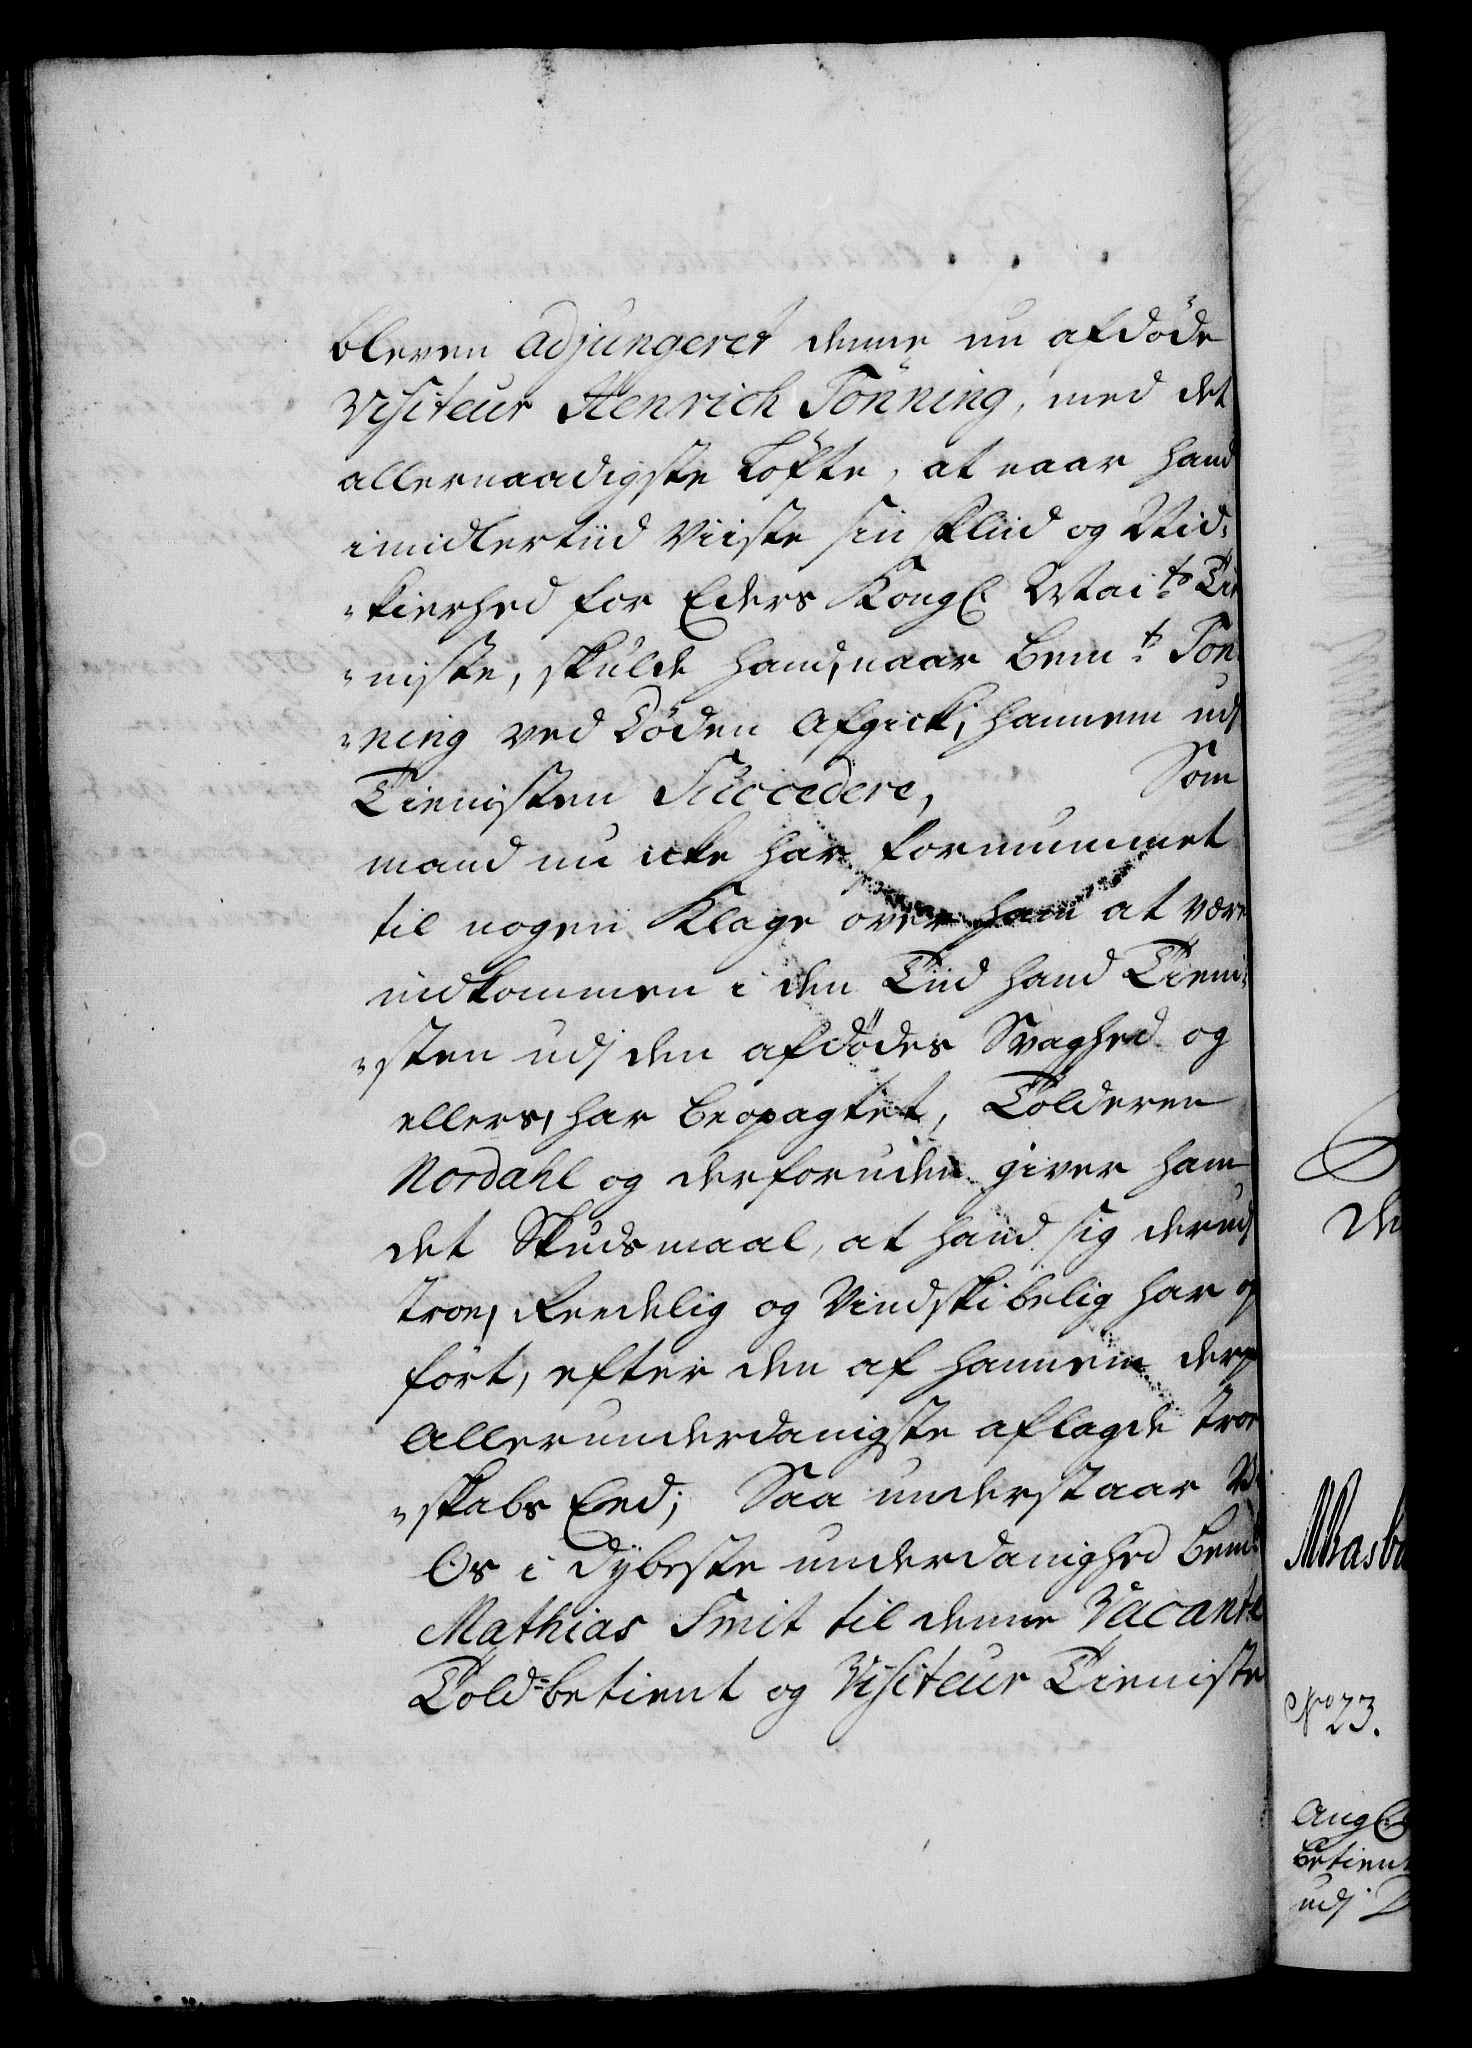 bleven adjungeret denne nu afdøde
Visiteur Henrich Tønning, med det
allernaadigste Løfte, at naar hand
imidlertiid Viiste sin fliid og Nid¬
"kierhed for Eders Kongl Mai:ts Tie
"niste, skulde hand, naar bem:t Tøn
"ning ved Døden Afgick, hannem udj
Tienisten Succedere, Som
mand nu icke har fornummet
til nogen Klage over ham at være
indkommen i den Tiid hand Tieni¬
"sten udj den afdødes Svaghed og
ellers, har beopagtet, Tolderen
Nordahl og derforuden giver ham
det Skudsmaal, at hand sig derudj
troe, Reedelig og Vindskibelig har op
ført, efter den af hannem derp
Allerunderdanigste aflagde troe
"skabs Eed; Saa understaar V
Os i dybeste underdanighed bem:t
Mathias Smit til denne Vacante
Told-betient og Visiteur Tieniste
De
No 23.
Ang
betient
udj